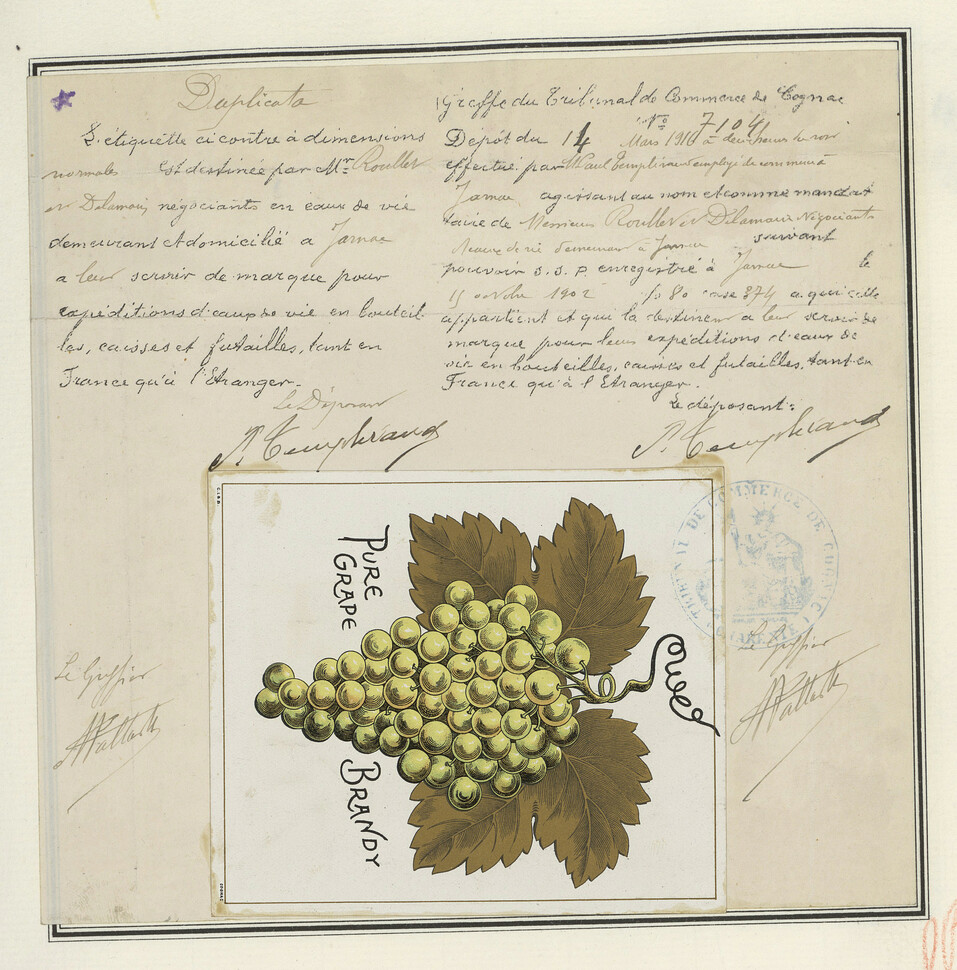 Duplicata
L'étiquette ci contre à dimensions
normales Est destinée par Mr. Roullet
et Delamain négociants en eaux de vie
demeurant et domicilié a Jarnac
a leur servir de marque pour
expéditions d'eaux de vie en bouteil
les, caisses et futailles, tant en
France qu'à l'Etranger.
Le Déposant
Greffe du Tribunal de Commerce de Cognac
No 7104
Dépôt du 14 Mars 1910 à deux heures du soir
effectué par Paul employé de commerce à
Jarnac agissant au nom et comme manda
taire de Messieurs Roullet et Delamain Négociants
d'eaux de vie demeurant à Jarnac suivant
pouvoir S.S.P. enregistré à Jarnac le
15 octobre 1902 fo 80 case 874 a qui elle
appartient et qui la destinent a leur servir de
marque pour leurs expéditions d'eaux de
vie en bouteilles, caisses et futailles, tant en
France qu'à l'Etranger.
Le déposant:
PURE
GRAPE
BRANDY
TRIBUNAL DE COMMERCE DE COGNAC
CHARENTE
Le Greffier
Le Greffier
COGNAC